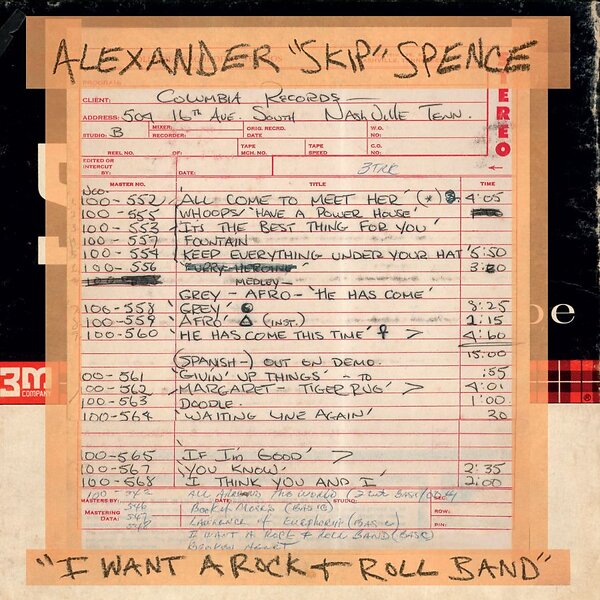 ALEXANDER "SKIP" SPENCE
CLIENT: COLUMBIA RECORDS
ADDRESS: 504 16TH AVE. SOUTH NASHVILLE TENN.
STEREO
STUDIO: B MIXER: RECORDER: ORIG. RECRD. DATE: W.O. NO:
REEL NO. OF: TAPE MCH. NO. TAPE SPEED C.O. NO:
EDITED OR INTERCUT BY: DATE: 3TRK
MASTER NO. TITLE TIME
NCO.
100-552 ALL COME TO MEET HER' (*) 4:05
100-555 WHOOPS/ 'HAVE A POWER HOUSE'
100-553 IT'S THE BEST THING FOR YOU'
100-557 FOUNTAIN
100-554 KEEP EVERYTHING UNDER YOUR HAT' 5:50
100-556 FURRY HEROINE
MEDLEY-
GREY - AFRO - 'HE HAS COME'
100-558 'GREY'
8:25
100-559 'AFRO' (INST.) 1:15
100-560 'HE HAS COME THIS TIME' > 4:60
15:00
(SPANISH-) OUT ON DEMO.
00-561 'GIVIN' UP THINGS' - TO :55
100-562 'MARGARET - TIGER RUG' > 4:01
100-563 DOODLE. 1:00
100-564 'WAITING LINE AGAIN' 20
100-565 'IF I'M GOOD' >
100-567 'YOU KNOW' 2:35
100-568 'I THINK YOU AND I' 2:00
ALL AROUND THE WORLD
MASTERS BY: DATE: STUDIO:
546 BOOK OF MOSES (BASIC)
MASTERING DATA: 547 LAWRENCE OF EUPHORIA (BASIC) ROW:
548 I WANT A ROCK & ROLL BAND (BASIC)
BROKEN HEART
3M
COMPANY
"I WANT A ROCK + ROLL BAND"